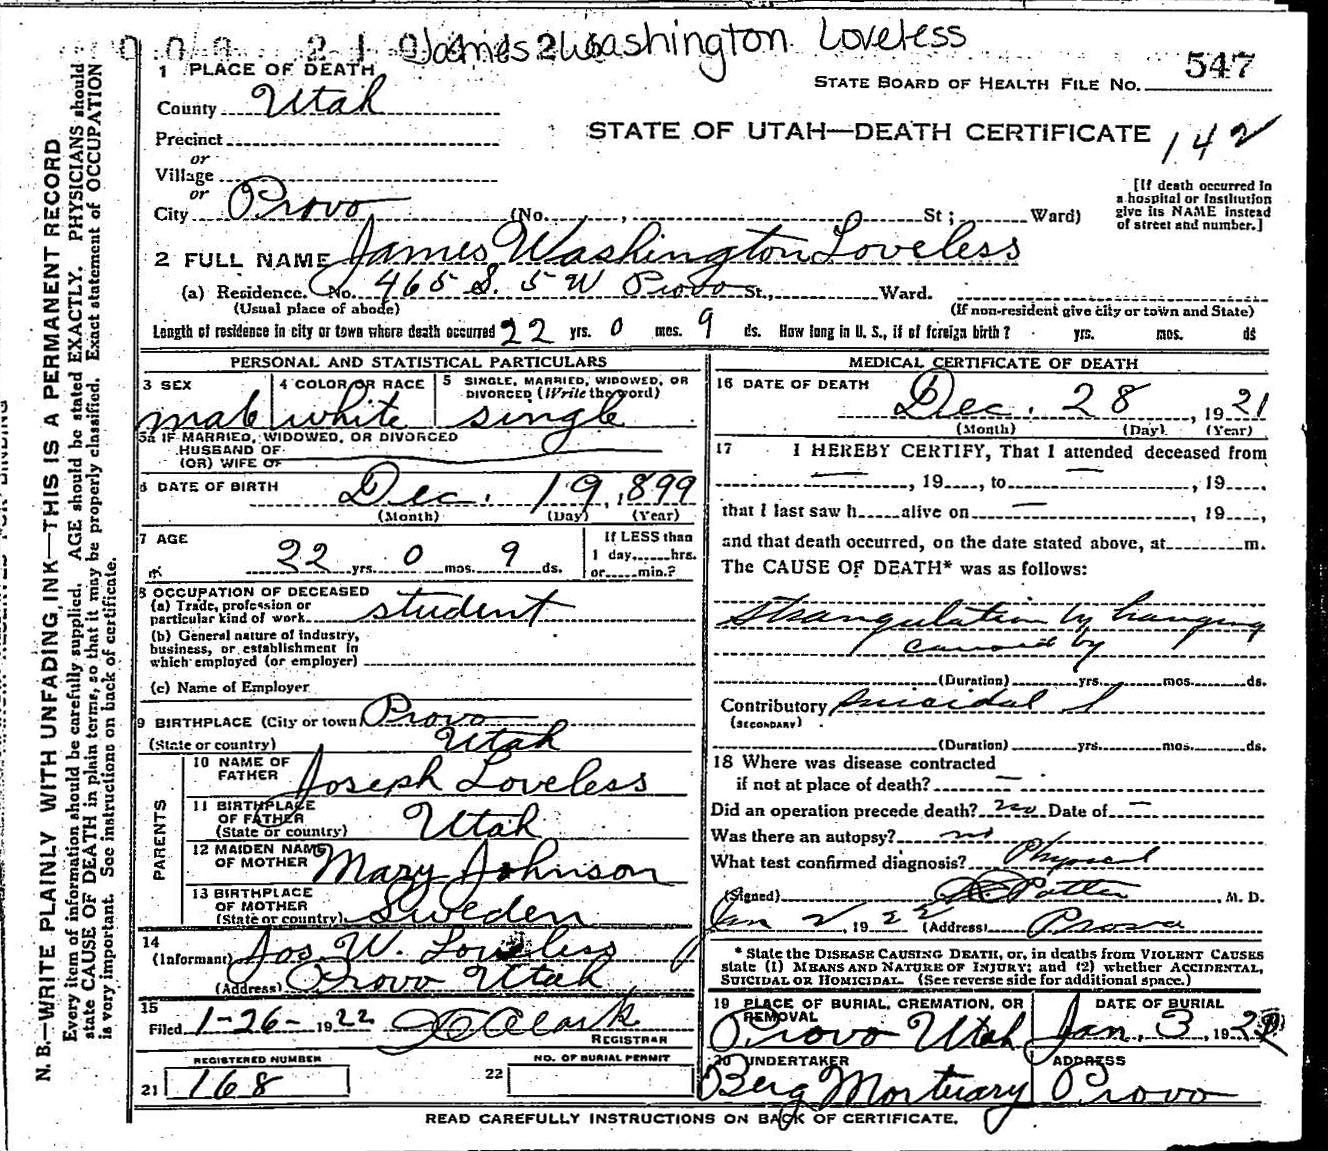 James Washington Loveless
547
1 PLACE OF DEATH
STATE BOARD OF HEALTH FILE NO.
County Utah
STATE OF UTAH—DEATH CERTIFICATE
142
Precinct
or
Village
or
City Provo (No. , St; Ward)
[If death occurred in
a hospital or institution
give its NAME instead
of street and number.]
2 FULL NAME James Washington Loveless
(a) Residence. No. 465 S. 5 W Provo St., Ward.
(Usual place of abode)
(If non-resident give city or town and State)
Length of residence in city or town where death occurred 22 yrs. 0 mos. 9 ds. How long in U. S., if of foreign birth? yrs. mos. ds
PERSONAL AND STATISTICAL PARTICULARS
3 SEX
male
4 COLOR OR RACE
white
5 SINGLE, MARRIED, WIDOWED, OR
DIVORCED (Write the word)
single
5a IF MARRIED, WIDOWED, OR DIVORCED
HUSBAND OF
(OR) WIFE OF
6 DATE OF BIRTH Dec. 19, 1899
(Month) (Day) (Year)
7 AGE
22 yrs. 0 mos. 9 ds.
If LESS than
1 day, hrs.
or min.?
8 OCCUPATION OF DECEASED
(a) Trade, profession or
particular kind of work student
(b) General nature of industry,
business, or establishment in
which employed (or employer)
(c) Name of Employer
9 BIRTHPLACE (City or town) Provo
(State or country) Utah
PARENTS
10 NAME OF
FATHER Joseph Loveless
11 BIRTHPLACE
OF FATHER
(State or country) Utah
12 MAIDEN NAME
OF MOTHER Mary Johnson
13 BIRTHPLACE
OF MOTHER
(State or country) Sweden
14
(Informant) Jos. W. Loveless
(Address) Provo Utah
15
Filed 1-26- 1922 Clark
REGISTRAR
REGISTERED NUMBER
21 168
NO. OF BURIAL PERMIT
22
MEDICAL CERTIFICATE OF DEATH
16 DATE OF DEATH
Dec. 28, 1921
(Month) (Day) (Year)
17 I HEREBY CERTIFY, That I attended deceased from
, 19 , to , 19 .
that I last saw h alive on , 19 ,
and that death occurred, on the date stated above, at m.
The CAUSE OF DEATH* was as follows:
Strangulation by hanging
caused by
(Duration) yrs. mos. ds.
Contributory Suicidal
(SECONDARY)
(Duration) yrs. mos. ds.
18 Where was disease contracted
if not at place of death? —
Did an operation precede death? no Date of —
Was there an autopsy? no
What test confirmed diagnosis? Physical
(Signed) Patten, M. D.
Jan 2, 1922 (Address) Provo
* State the DISEASE CAUSING DEATH, or, in deaths from VIOLENT CAUSES
state (1) MEANS AND NATURE OF INJURY; and (2) whether ACCIDENTAL,
SUICIDAL OR HOMICIDAL. (See reverse side for additional space.)
19 PLACE OF BURIAL, CREMATION, OR
REMOVAL
Provo Utah
DATE OF BURIAL
Jan. 3, 1922
20 UNDERTAKER
Berg Mortuary
ADDRESS
Provo
READ CAREFULLY INSTRUCTIONS ON BACK OF CERTIFICATE.
N. B.—WRITE PLAINLY WITH UNFADING INK—THIS IS A PERMANENT RECORD
Every item of information should be carefully supplied. AGE should be stated EXACTLY. PHYSICIANS should
state CAUSE OF DEATH in plain terms, so that it may be properly classified. Exact statement of OCCUPATION
is very important. See instructions on back of certificate.